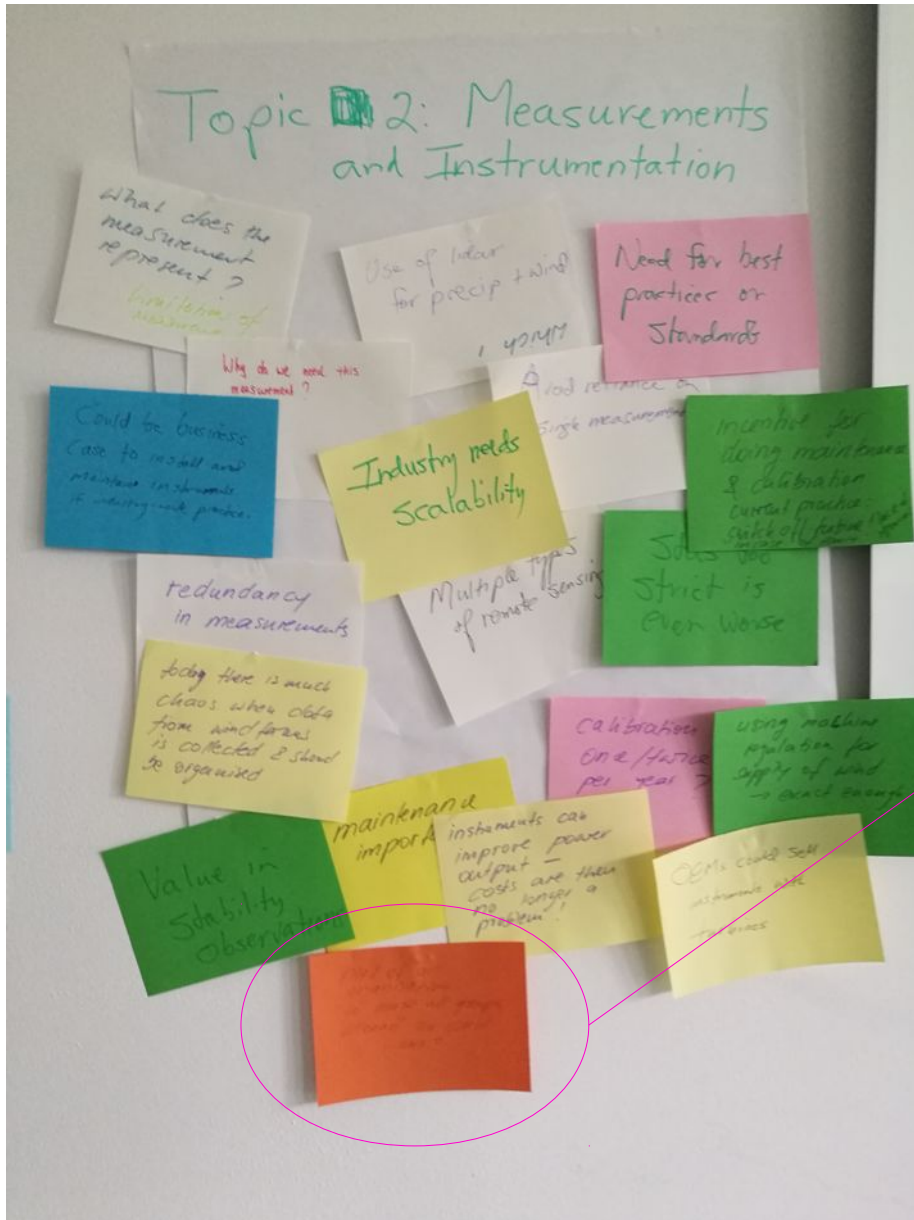 Topic 2: Measurements
and Instrumentation
What does the
measurement
represent?
Limitation of
Use of lidar
for precip + wind
Which
Need for best
practices or
Standards
Why do we need this
measurement?
Avoid reliance on
single measurement
Could be business
case to install and
maintain instruments
if
practice.
Industry needs
scalability
Incentive for
doing maintenance
& calibration
current practice:
switch off, future
redundancy
in measurements
Multiple types
of remote sensing
strict is
even worse
today there is much
chaos when data
from wind farms
is collected & should
be organised
calibration
one/twice
per year?
using machine
regulation for
supply of wind
→ exact enough
maintenance
instruments can
improve power
output —
costs are then
no longer a
problem!
Value in
Stability
Observations
OEMs could sell
instruments with
turbines